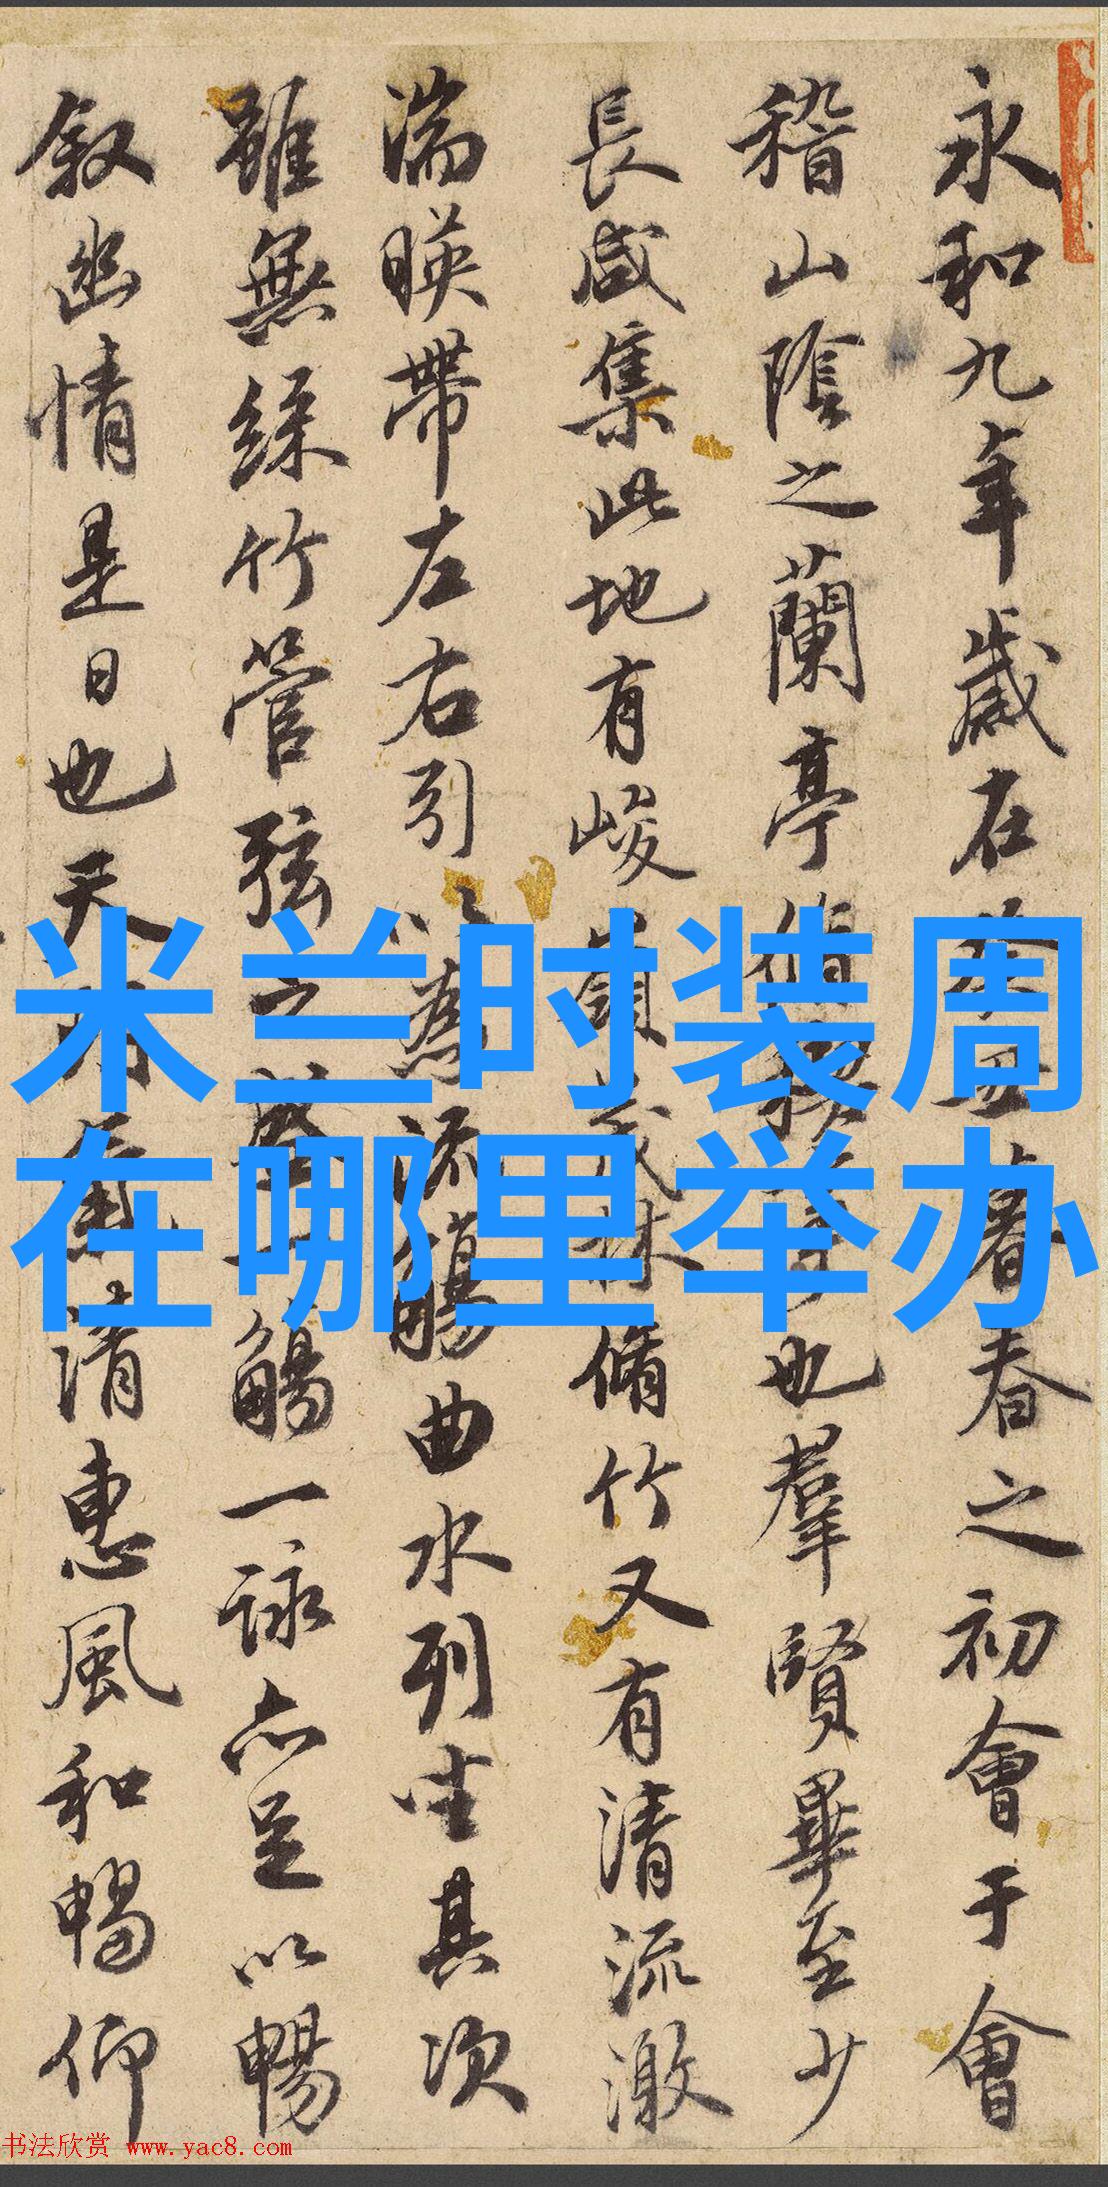 米兰时装周
在哪里举办
永和九年歲在丑暮春之初會于會
稽山陰之蘭亭脩稧也羣賢畢至少
長咸集此地有峻領茂林脩竹又有清流激
湍暎帶左右引以為流觴曲水列坐其次
雖無絲竹管弦之一觴一詠亦足以暢
叙幽情是日也天氣清惠風和暢仰
书法欣赏 www.yac8.com